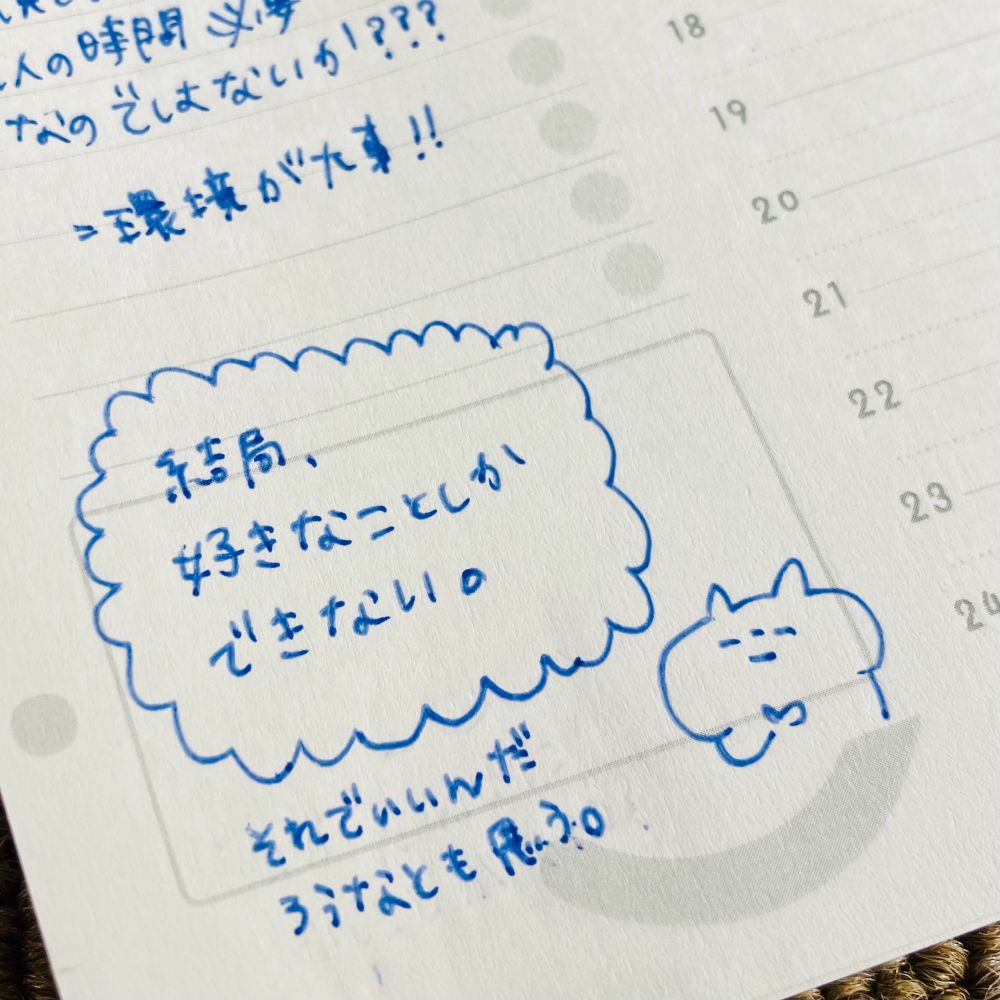 人の時間 必要
なのではないか???
=環境が大事!!
結局、
好きなことしか
できない。
それでいいんだ
ろうなとも思う。
18
19
20
21
22
23
24